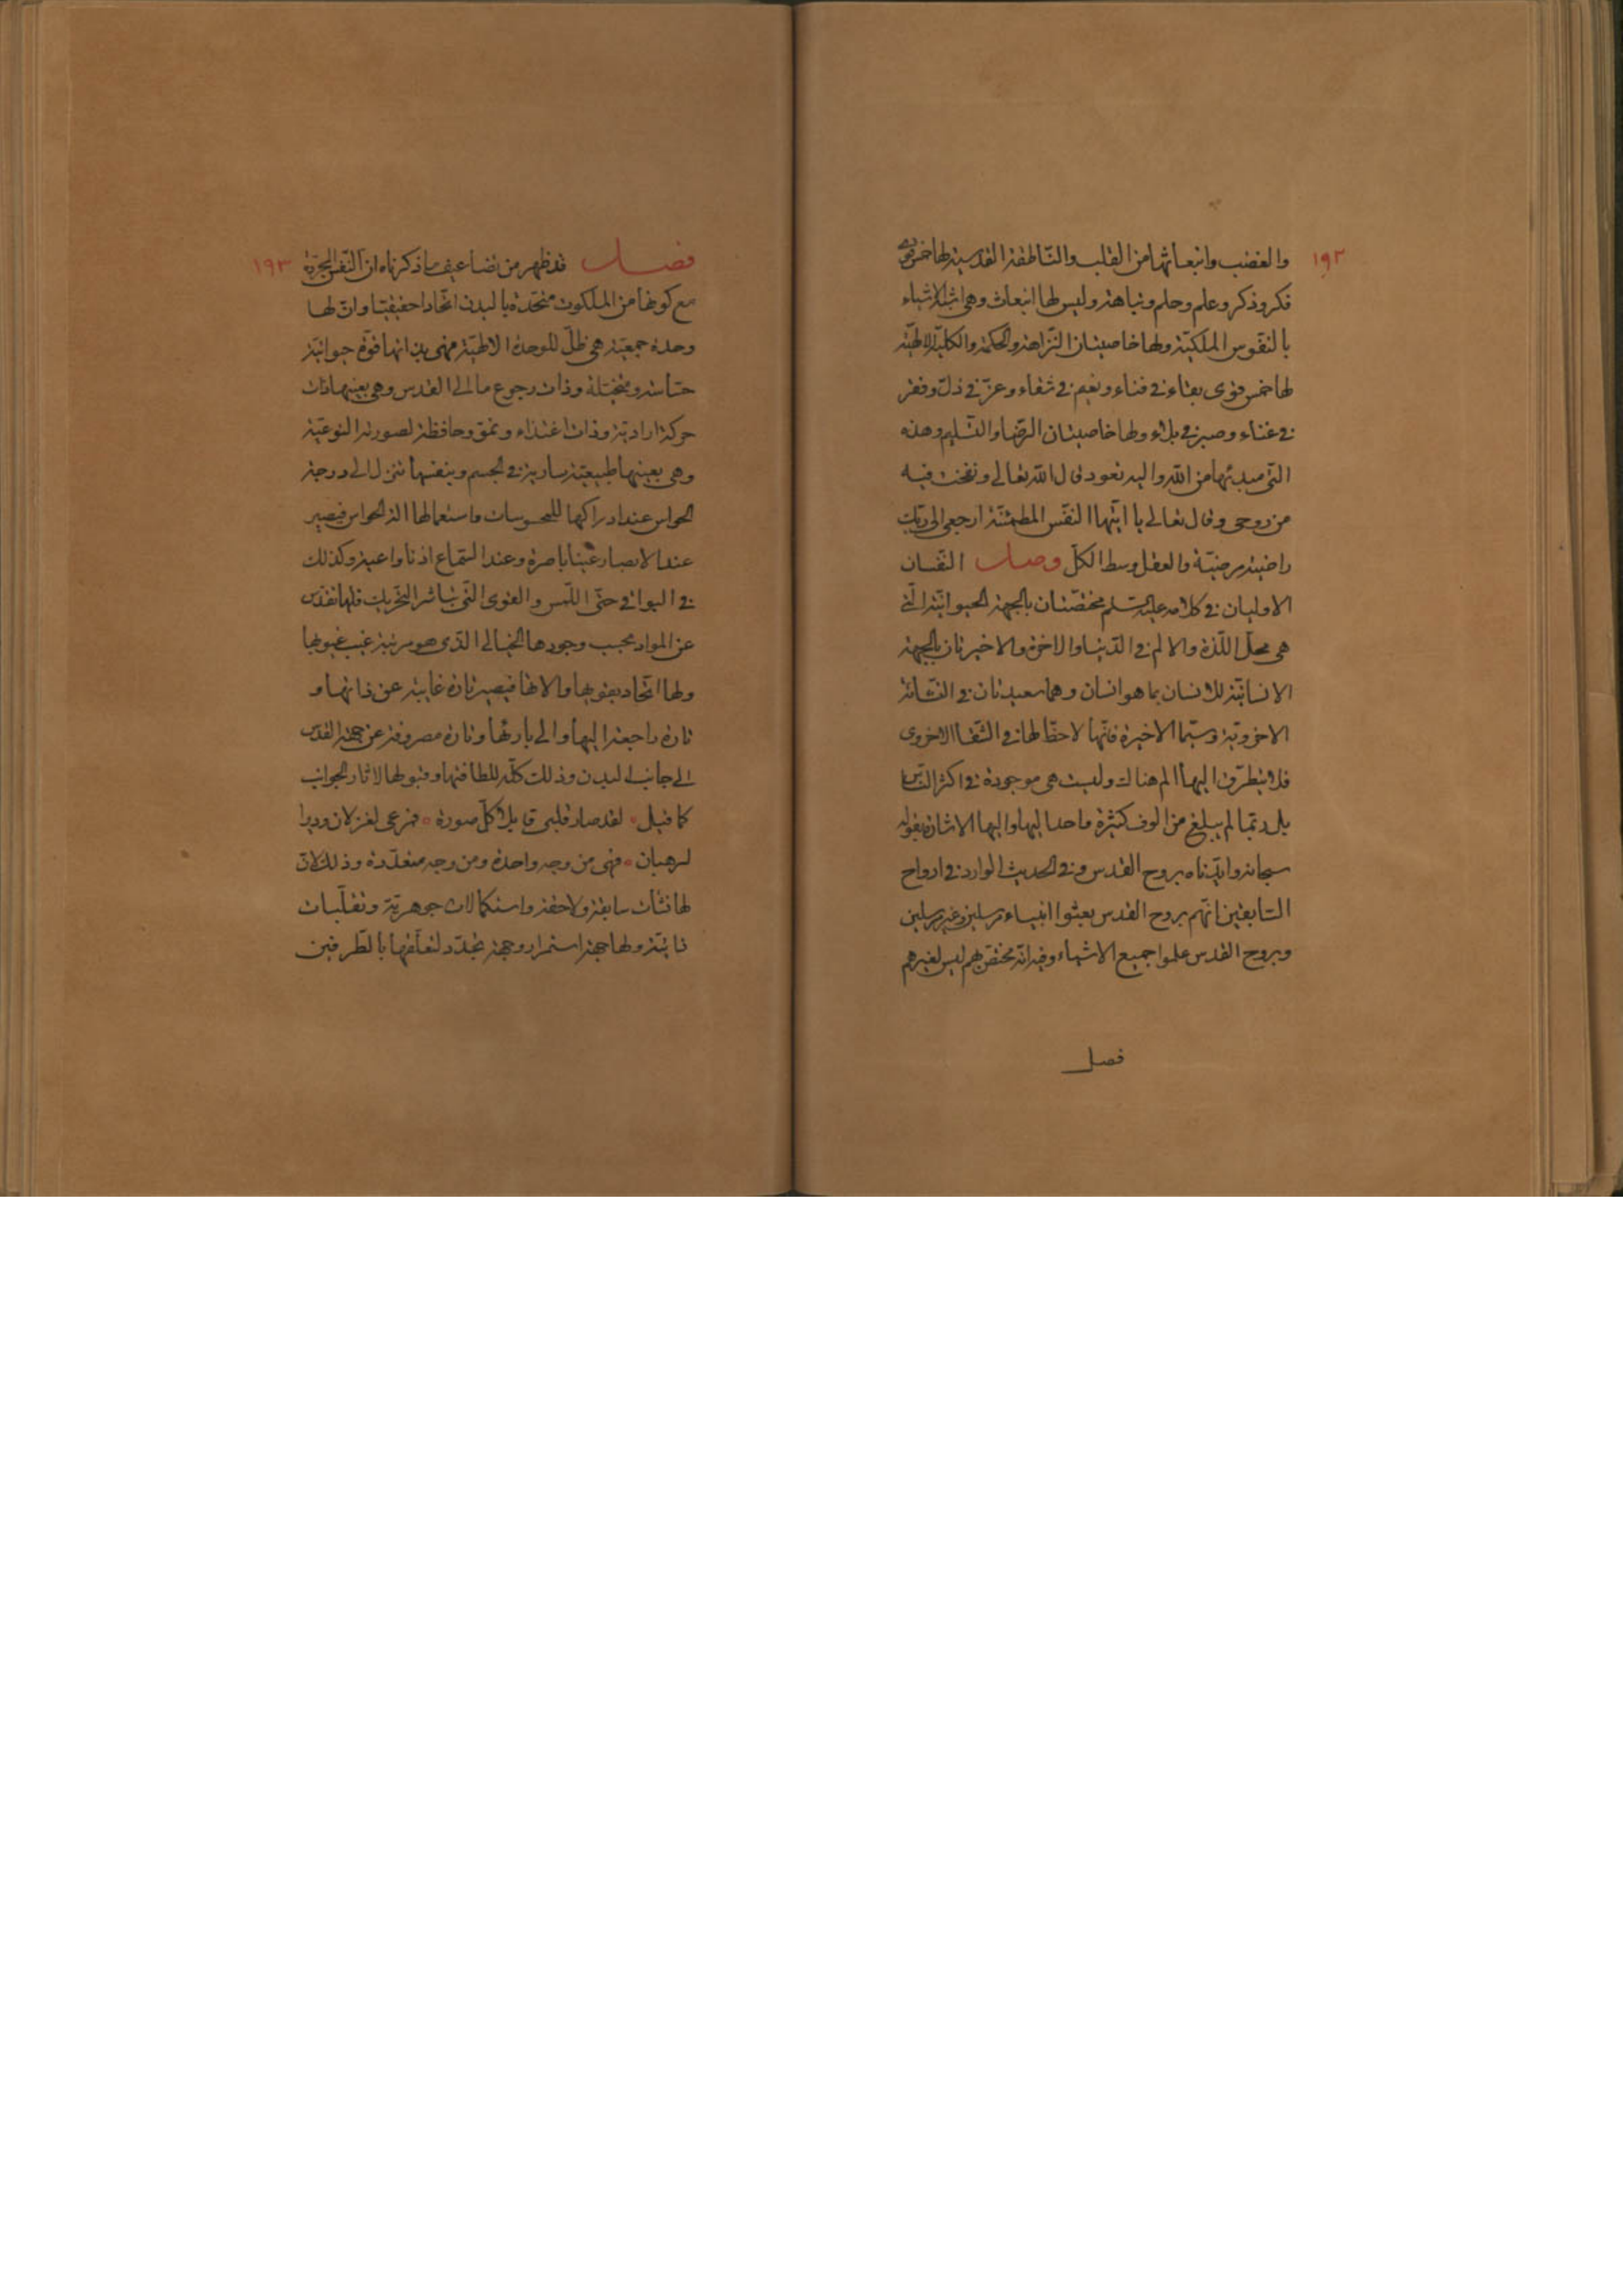 ١٩٢
والغضب وانبعاثها من القلب والناطقة القدسية لها خمس قوى
فكر وذكر وعلم وحلم ونباهة وليس لها انبعاث وهي اشبه الاشياء
بالنفوس الملكية ولها خاصيتان النزاهة والحكمة والكلية الالهية
لها خمس قوى بقاء في فناء ونعيم في شقاء وعز في ذل وفقر
في غناء وصبر في بلاء ولها خاصيتان الرضا والتسليم وهذه
التي مبدئها من الله واليه تعود قال الله تعالى ونفخت فيه
من روحي وقال تعالى يا ايتها النفس المطمئنة ارجعي الى ربك
راضية مرضية والعقل وسط الكل وصل النفسان
الاوليان في كلامه عليه السلم مختصتان بالجهة الحيوانية التي
هي محل اللذة والالم في الدنيا والاخرة والاخيرتان بالجهة
الانسانية للانسان بما هو انسان وهما سعيدتان في النشأة
الاخروية وسيما الاخيرة فانها لا حظ لها في الشقاء الاخروي
فلا يتطرق اليها الم هناك وليست هي موجودة في اكثر الناس
بل ربما لم يبلغ من الوف كثيرة واحد اليها واليها الاشارة بقوله
سبحانه وايدناه بروح القدس وفي الحديث الوارد في ارواح
السابقين انهم بروح القدس بعثوا انبياء مرسلين وغير مرسلين
وبروح القدس علموا جميع الاشياء وفيه انه مختص بهم ليس لغيرهم
فصل
١٩٣
فصل قد ظهر من تضاعيف ما ذكرناه ان النفس المجردة
مع كونها من الملكوت متحدة بالبدن اتحادا حقيقيا وان لها
وحدة جمعية هي ظل للوحدة الالهية فهي بذاتها قوة حيوانية
حساسة ومتخيلة وذات رجوع ما الى القدس وهي بعينها ذات
حركة ارادية وذات اغتذاء ونمو وحافظة لصورته النوعية
وهي بعينها طبيعة سارية في الجسم وبنفسها تنزل الى درجة
الحواس عند ادراكها للمحسوسات واستعمالها آلة الحواس فيصير
عند الابصار عينا باصرة وعند السماع اذنا واعية وكذلك
في البواقي حتى اللمس والقوى التي تباشر التحريك فلها تقدس
عن المواد بحسب وجودها الخيالي الذي هو مرتبة غيب غيوبها
ولها اتحاد بقويها والاتها فيصير تارة غايبة عن ذاتها و
تارة راجعة اليها والى بارئها وتارة مصروفة عن جهة القدس
الى جانب البدن وذلك كله للطافتها وقبولها لاثار الجوانب
كما قيل لقد صار قلبي قابلا كل صورة فمرعى لغزلان وديرا
لرهبان فهي من وجه واحدة ومن وجه متعددة وذلك لان
لها نشات سابقة ولاحقة واستكمالات جوهرية وتقلبات
ذاتية ولها جهة استمرار وجهة تجدد لتعلقها بالطرفين